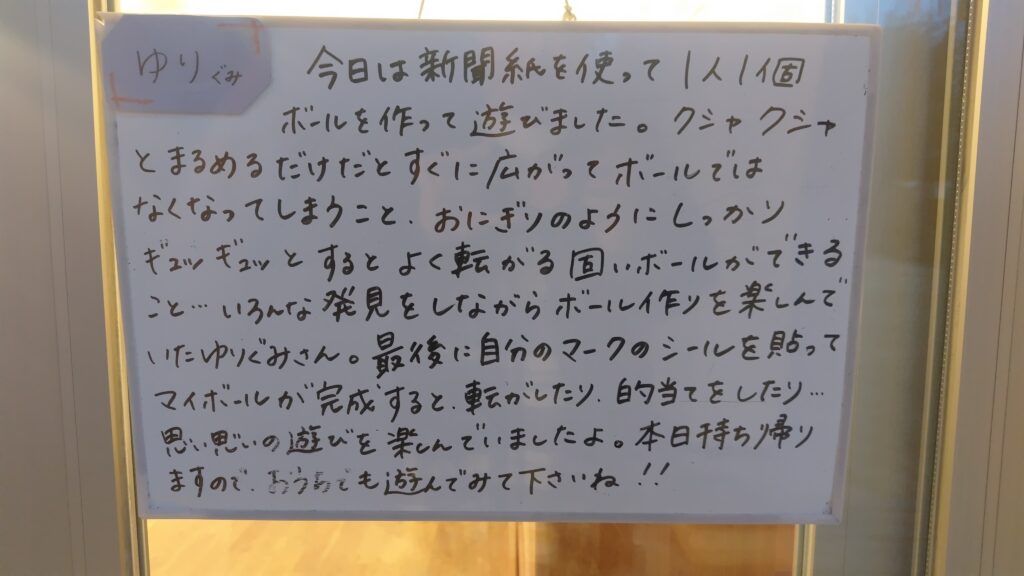 ゆりぐみ
今日は新聞紙を使って1人1個
ボールを作って遊びました。クシャクシャ
とまるめるだけだとすぐに広がってボールでは
なくなってしまうこと、おにぎりのようにしっかり
ギュッギュッとするとよく転がる固いボールができる
こと…いろんな発見をしながらボール作りを楽しんで
いたゆりぐみさん。最後に自分のマークのシールを貼って
マイボールが完成すると、転がしたり、的当てをしたり…
思い思いの遊びを楽しんでいましたよ。本日持ち帰り
ますので、おうちでも遊んでみて下さいね!!